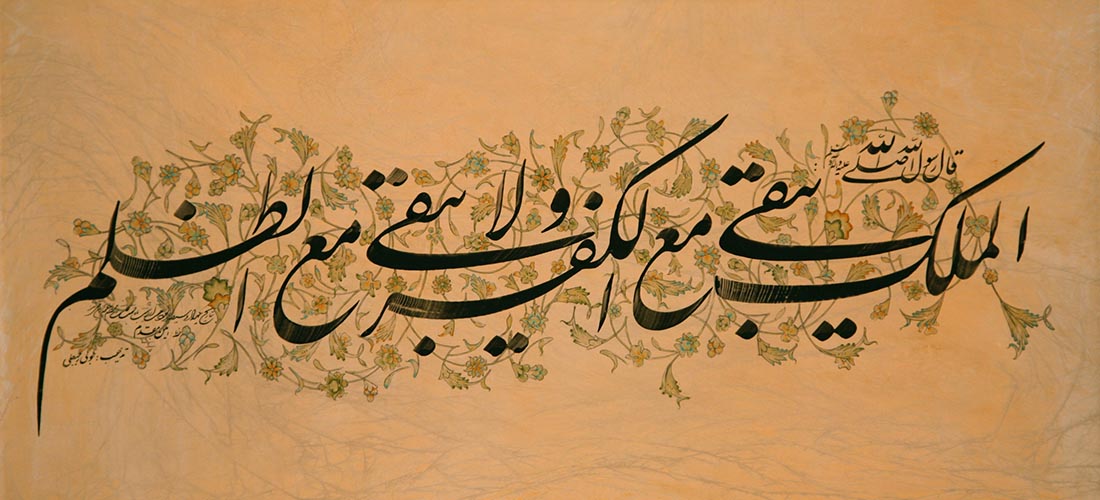 قال رسول الله صلی الله علیه و آله
الملک یبقی مع الکفر ولا یبقی مع الظلم